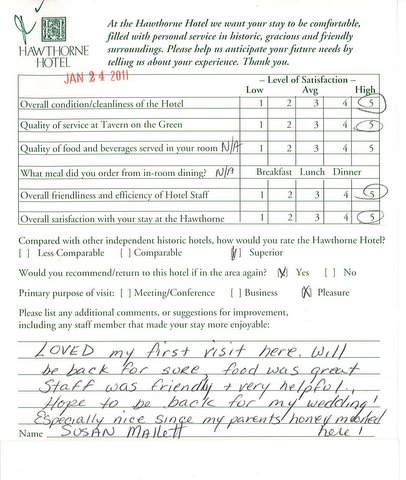 At the Hawthorne Hotel we want your stay to be comfortable,
filled with personal service in historic, gracious and friendly
surroundings. Please help us anticipate your future needs by
telling us about your experience. Thank you.
HAWTHORNE
HOTEL
JAN 24 2011
– Level of Satisfaction –
Low Avg High
Overall condition/cleanliness of the Hotel 1 2 3 4 5
Quality of service at Tavern on the Green 1 2 3 4 5
Quality of food and beverages served in your room N/A 1 2 3 4 5
What meal did you order from in-room dining? N/A Breakfast Lunch Dinner
Overall friendliness and efficiency of Hotel Staff 1 2 3 4 5
Overall satisfaction with your stay at the Hawthorne 1 2 3 4 5
Compared with other independent historic hotels, how would you rate the Hawthorne Hotel?
[ ] Less Comparable [ ] Comparable [X] Superior
Would you recommend/return to this hotel if in the area again? [X] Yes [ ] No
Primary purpose of visit: [ ] Meeting/Conference [ ] Business [X] Pleasure
Please list any additional comments, or suggestions for improvement,
including any staff member that made your stay more enjoyable:
LOVED my first visit here. Will
be back for sure, food was great
Staff was friendly + very helpful.
Hope to be back for my wedding!
Especially nice since my parents honeymooned
here!
Name SUSAN Mallett